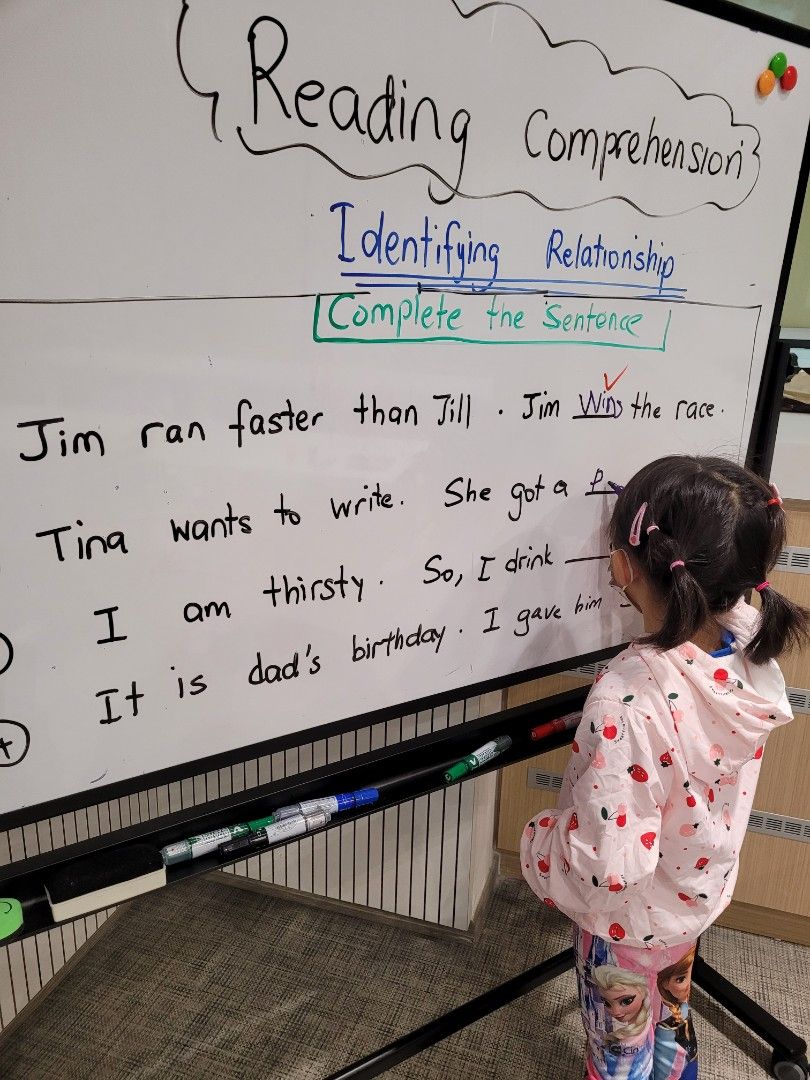 Reading Comprehension
Identifying Relationship
Complete the Sentence
Jim ran faster than Jill. Jim Wins the race.
Tina wants to write. She got a P
I am thirsty. So, I drink
It is dad's birthday. I gave him